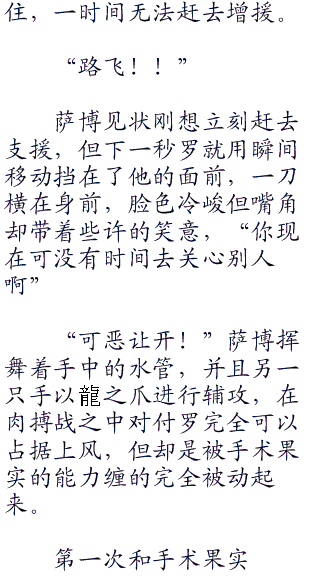 住，一时间无法赶去增援。
“路飞！！”
萨博见状刚想立刻赶去
支援，但下一秒罗就用瞬间
移动挡在了他的面前，一刀
横在身前，脸色冷峻但嘴角
却带着些许的笑意，“你现
在可没有时间去关心别人
啊”
“可恶让开！”萨博挥
舞着手中的水管，并且另一
只手以龍之爪进行辅攻，在
肉搏战之中对付罗完全可以
占据上风，但却是被手术果
实的能力缠的完全被动起
来。
第一次和手术果实